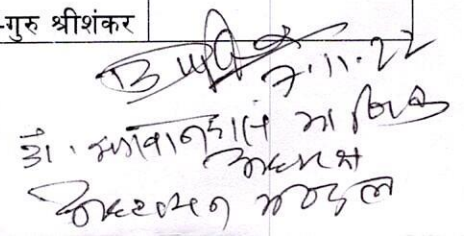 -गुरु श्रीशंकर
7.11.22
डॉ. भगवानदास
अध्यक्ष
अध्ययन मण्डल